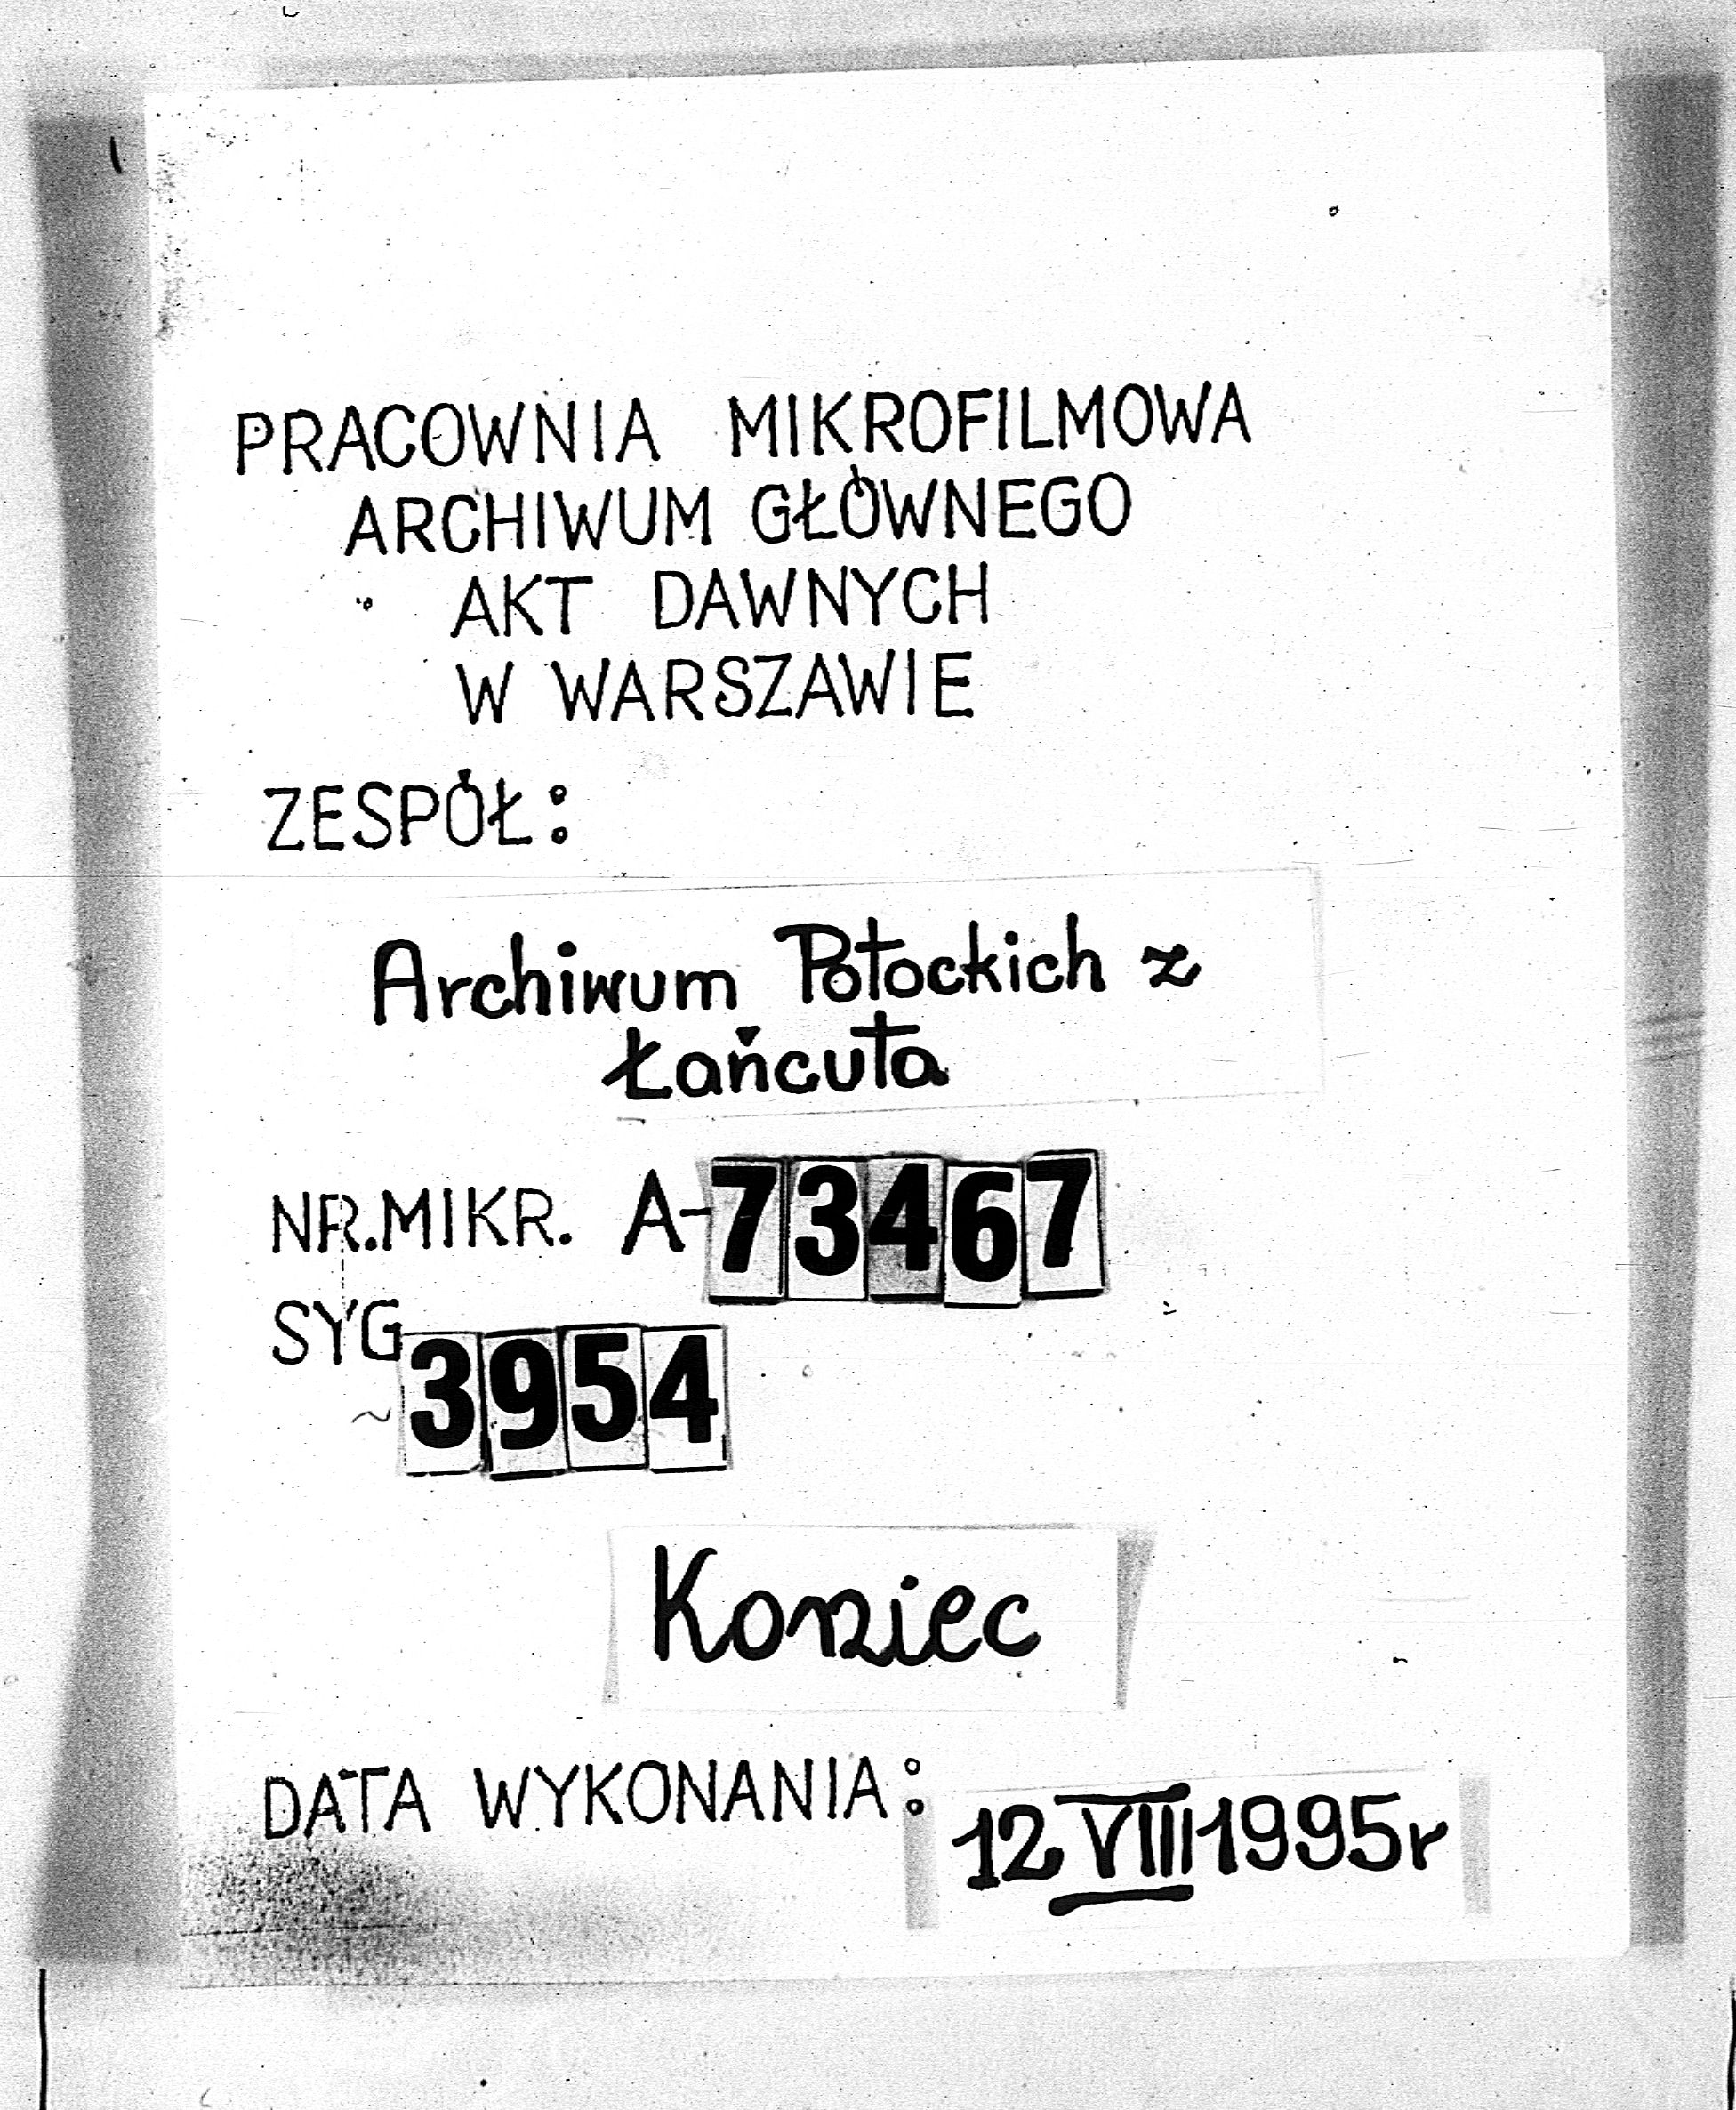 PRACOWNIA MIKROFILMOWA
ARCHIWUM GŁÓWNEGO
AKT DAWNYCH
W WARSZAWIE
ZESPÓŁ:
Archiwum Potockich z
Łańcuta
NR.MIKR. A-73467
SYG 3954
Koniec
DATA WYKONANIA: 12 VIII 1995r